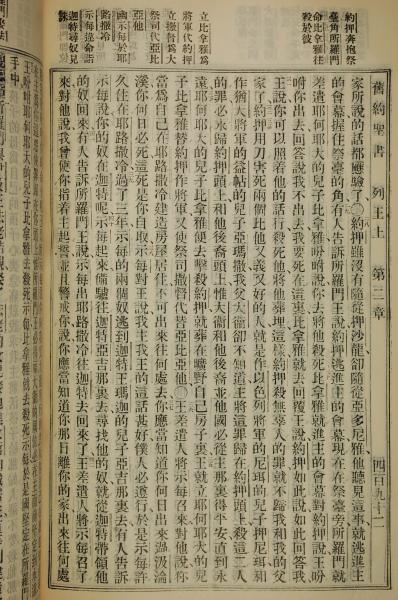 約押奔抱祭
臺角所羅門
命比拿雅往
殺於彼
立比拿雅爲
將軍代約押
立撒督爲大
祭司代亞比
亞他
幽示每於耶
路撒冷
示每違命詣
迦特尋奴見
誅
舊約聖書 列王上 第二章 四百九十二
家所說的話都應驗了〇約押雖沒有隨從押沙龍卻隨從亞多尼雅他聽見這事就逃進主
的會幕握住祭臺的角有人告訴所羅門王說約押逃進主的會幕現在在祭臺旁所羅門就
差遣耶何耶大的兒子比拿雅吩咐說你去將他殺死比拿雅就進主的會幕對約押說王吩
咐你出去回答說我不出去我要死在這裏比拿雅就去回覆王說約押如此說如此回答我
王說你可以照着他的話行殺死他將他葬埋這樣約押殺無辜人的罪就不歸我和我的父
家了約押用刀害死兩個比他又義又好的人就是作以色列將軍的尼珥的兒子押尼珥和
作猶大將軍的益帖的兒子亞瑪撒我父大衞卻不知道主將這罪歸在約押頭上殺這二人
的罪必永歸約押頭上和他後裔頭上惟大衞和他後裔並他國必從主那裏得平安直到永
遠耶何耶大的兒子比拿雅便去擊殺約押就葬在曠野自己房子裏王就立耶何耶大的兒
子比拿雅替約押作將軍又使祭司撒督代替亞比亞他〇王差遣人將示每召來對他說你
當爲自己在耶路撒冷建造房屋居住不可出來往何處去你應當知道你何日出來過汲淪
溪你何日必死這死是你自取示每對王說我主我王的話甚好僕人必遵行於是示每許
久住在耶路撒冷過了三年示每的兩個奴逃到迦特王瑪迦的兒子亞吉那裏去有人告訴
示每說你的奴在迦特呢示每起來備驢往迦特亞吉那裏去尋找他的奴就從迦特帶領他
的奴回來有人告訴所羅門王說示每出耶路撒冷往迦特去回來了王差遣人將示每召
來對他說我曾使你指着主起誓並且警戒你說你應當知道你那日離你的家出來往何處